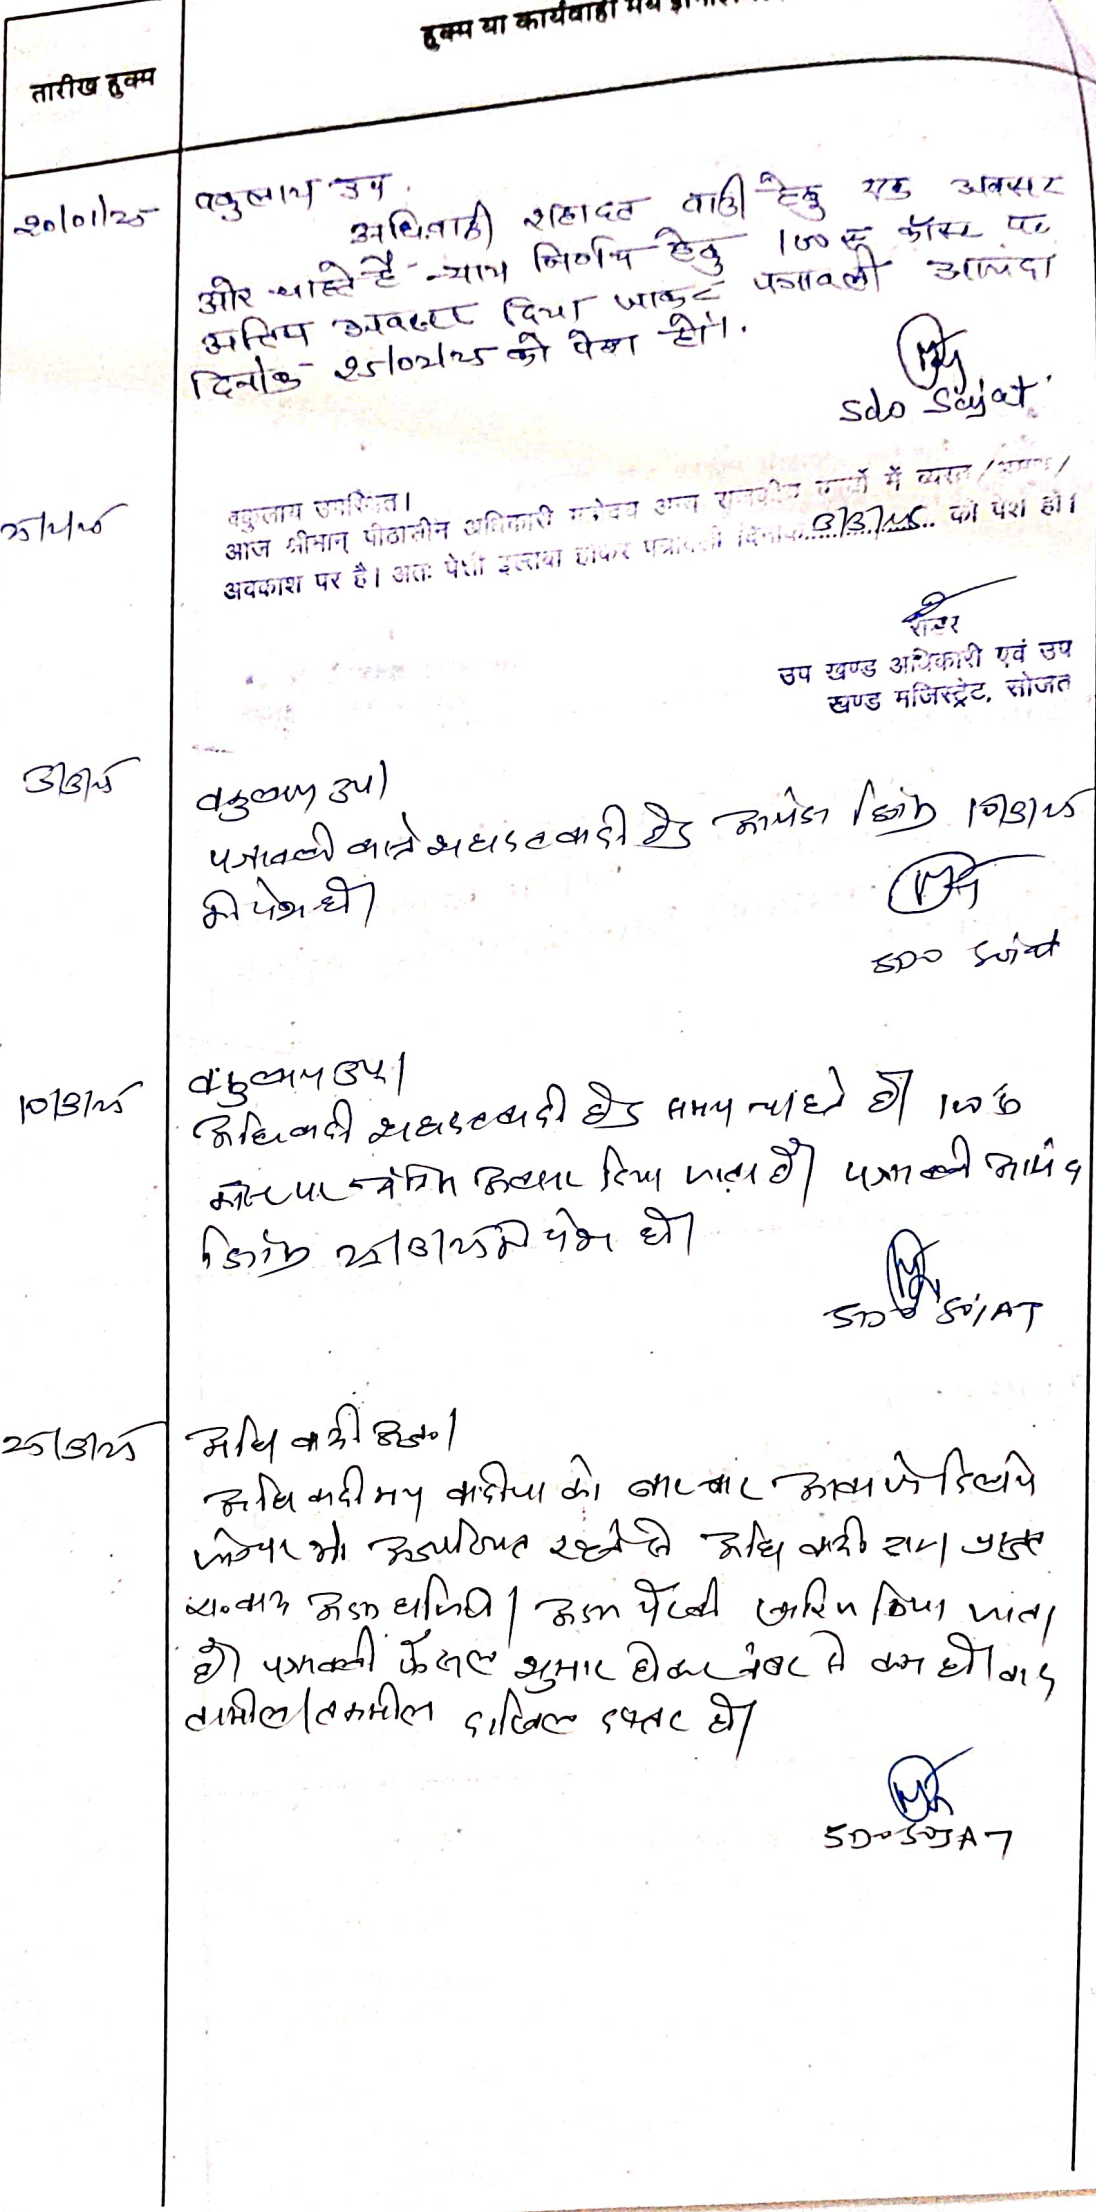 हुक्म या कार्यवाही मय
तारीख हुक्म
20/01/25
वकुलाय उप.
अधि.वादी शहादत वादी हेतु एक अवसर
और चाहते है न्याय निर्णय हेतु 100 रू कॉस्ट पर
अन्तिम अवसर दिया जाकर पत्रावली आयंदा
दिनांक 25/02/25 को पेश हो।
SDO Sojat
वकुलाय उपस्थित।
आज श्रीमान् पीठासीन अधिकारी महोदय अन्य राजकीय कार्यो में व्यस्त /भ्रमण/
अवकाश पर है। अतः पेशी इल्तवा होकर पत्रावली दिनांक 3/3/25 को पेश हो।
रीडर
उप खण्ड अधिकारी एवं उप
खण्ड मजिस्ट्रेट, सोजत
3/3/25
वकुलाय उप।
पत्रावली वास्ते शहादत वादी हेतु आयंदा दिनांक 10/3/25
को पेश हो।
SDO Sojat
10/3/25
वकुलाय उप।
अधिवादी शहादत वादी हेतु समय चाहते है। 100 रू
कॉस्ट पर अंतिम अवसर दिया जाता है। पत्रावली आयंदा
दिनांक 25/3/25 को पेश हो।
SDO SOJAT
25/3/25
अधि वादी
अधि वादी मय वादीया को बार बार आवाजे दिलाये
जाने पर भी अनुपस्थित रहने से अधि वादी द्वारा प्रस्तुत
अदम पैरवी खारिज किया जाता
है। पत्रावली फैसल शुमार होकर नंबर से कम हो। बाद
तामील/तकमील दाखिल दफ्तर हो।
SDO SOJAT